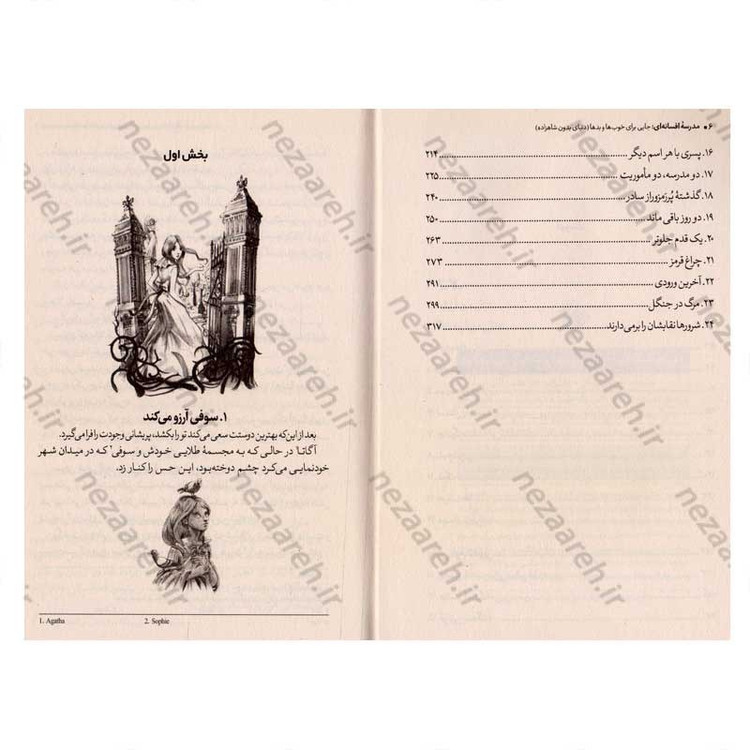 ۶ • مدرسهٔ افسانه‌ای: جایی برای خوب‌ها و بدها (دنیای بدون شاهزاده)
۱۶. پسری با هر اسم دیگر ........ ۲۱۴
۱۷. دو مدرسه، دو مأموریت ........ ۲۲۵
۱۸. گذشتهٔ پُررمزوراز سادر ........ ۲۴۰
۱۹. دو روز باقی ماند ........ ۲۵۰
۲۰. یک قدم جلوتر ........ ۲۶۳
۲۱. چراغ قرمز ........ ۲۷۳
۲۲. آخرین ورودی ........ ۲۹۱
۲۳. مرگ در جنگل ........ ۲۹۹
۲۴. شرورها نقابشان را برمی‌دارند ........ ۳۱۷
بخش اول
۱. سوفی آرزو می‌کند
بعد از این‌که بهترین دوستت سعی می‌کند تو را بکشد، پریشانی وجودت را فرا می‌گیرد.
آگاتا۱ در حالی که به مجسمهٔ طلایی خودش و سوفی۲ که در میدان شهر
خودنمایی می‌کرد چشم دوخته‌بود، این حس را کنار زد.
1. Agatha
2. Sophie
nezaareh.ir
nezaareh.ir
nezaareh.ir
nezaareh.ir
nezaareh.ir
nezaareh.ir
nezaareh.ir
nezaareh.ir
nezaareh.ir
nezaareh.ir
nezaareh.ir